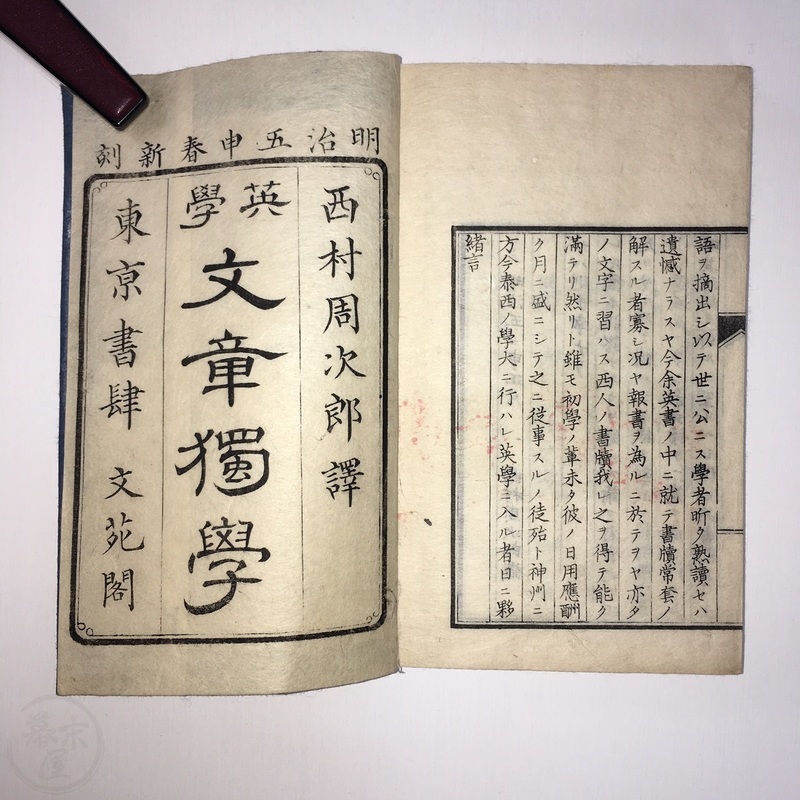 明治五申春新刻
西村周次郎譯
英學
文章獨學
東京書肆 文苑閣
緒言
方今泰西ノ學大ニ行ハレ英學ニ入ル者日ニ夥
ク月ニ盛ニシテ之ニ從事スルノ徒殆ト神州ニ
滿テリ然リト雖モ初學ノ輩未タ彼ノ日用應酬
ノ文字ニ習ハス西人ノ書牘我レ之ヲ得テ能ク
解スル者寡シ況ヤ報書ヲ為ルニ於テヲヤ亦タ
遺憾ナラスヤ今余英書ノ中ニ就テ書牘常套ノ
語ヲ摘出シ以テ世ニ公ニス學者昕夕熟讀セハ
幕末屋